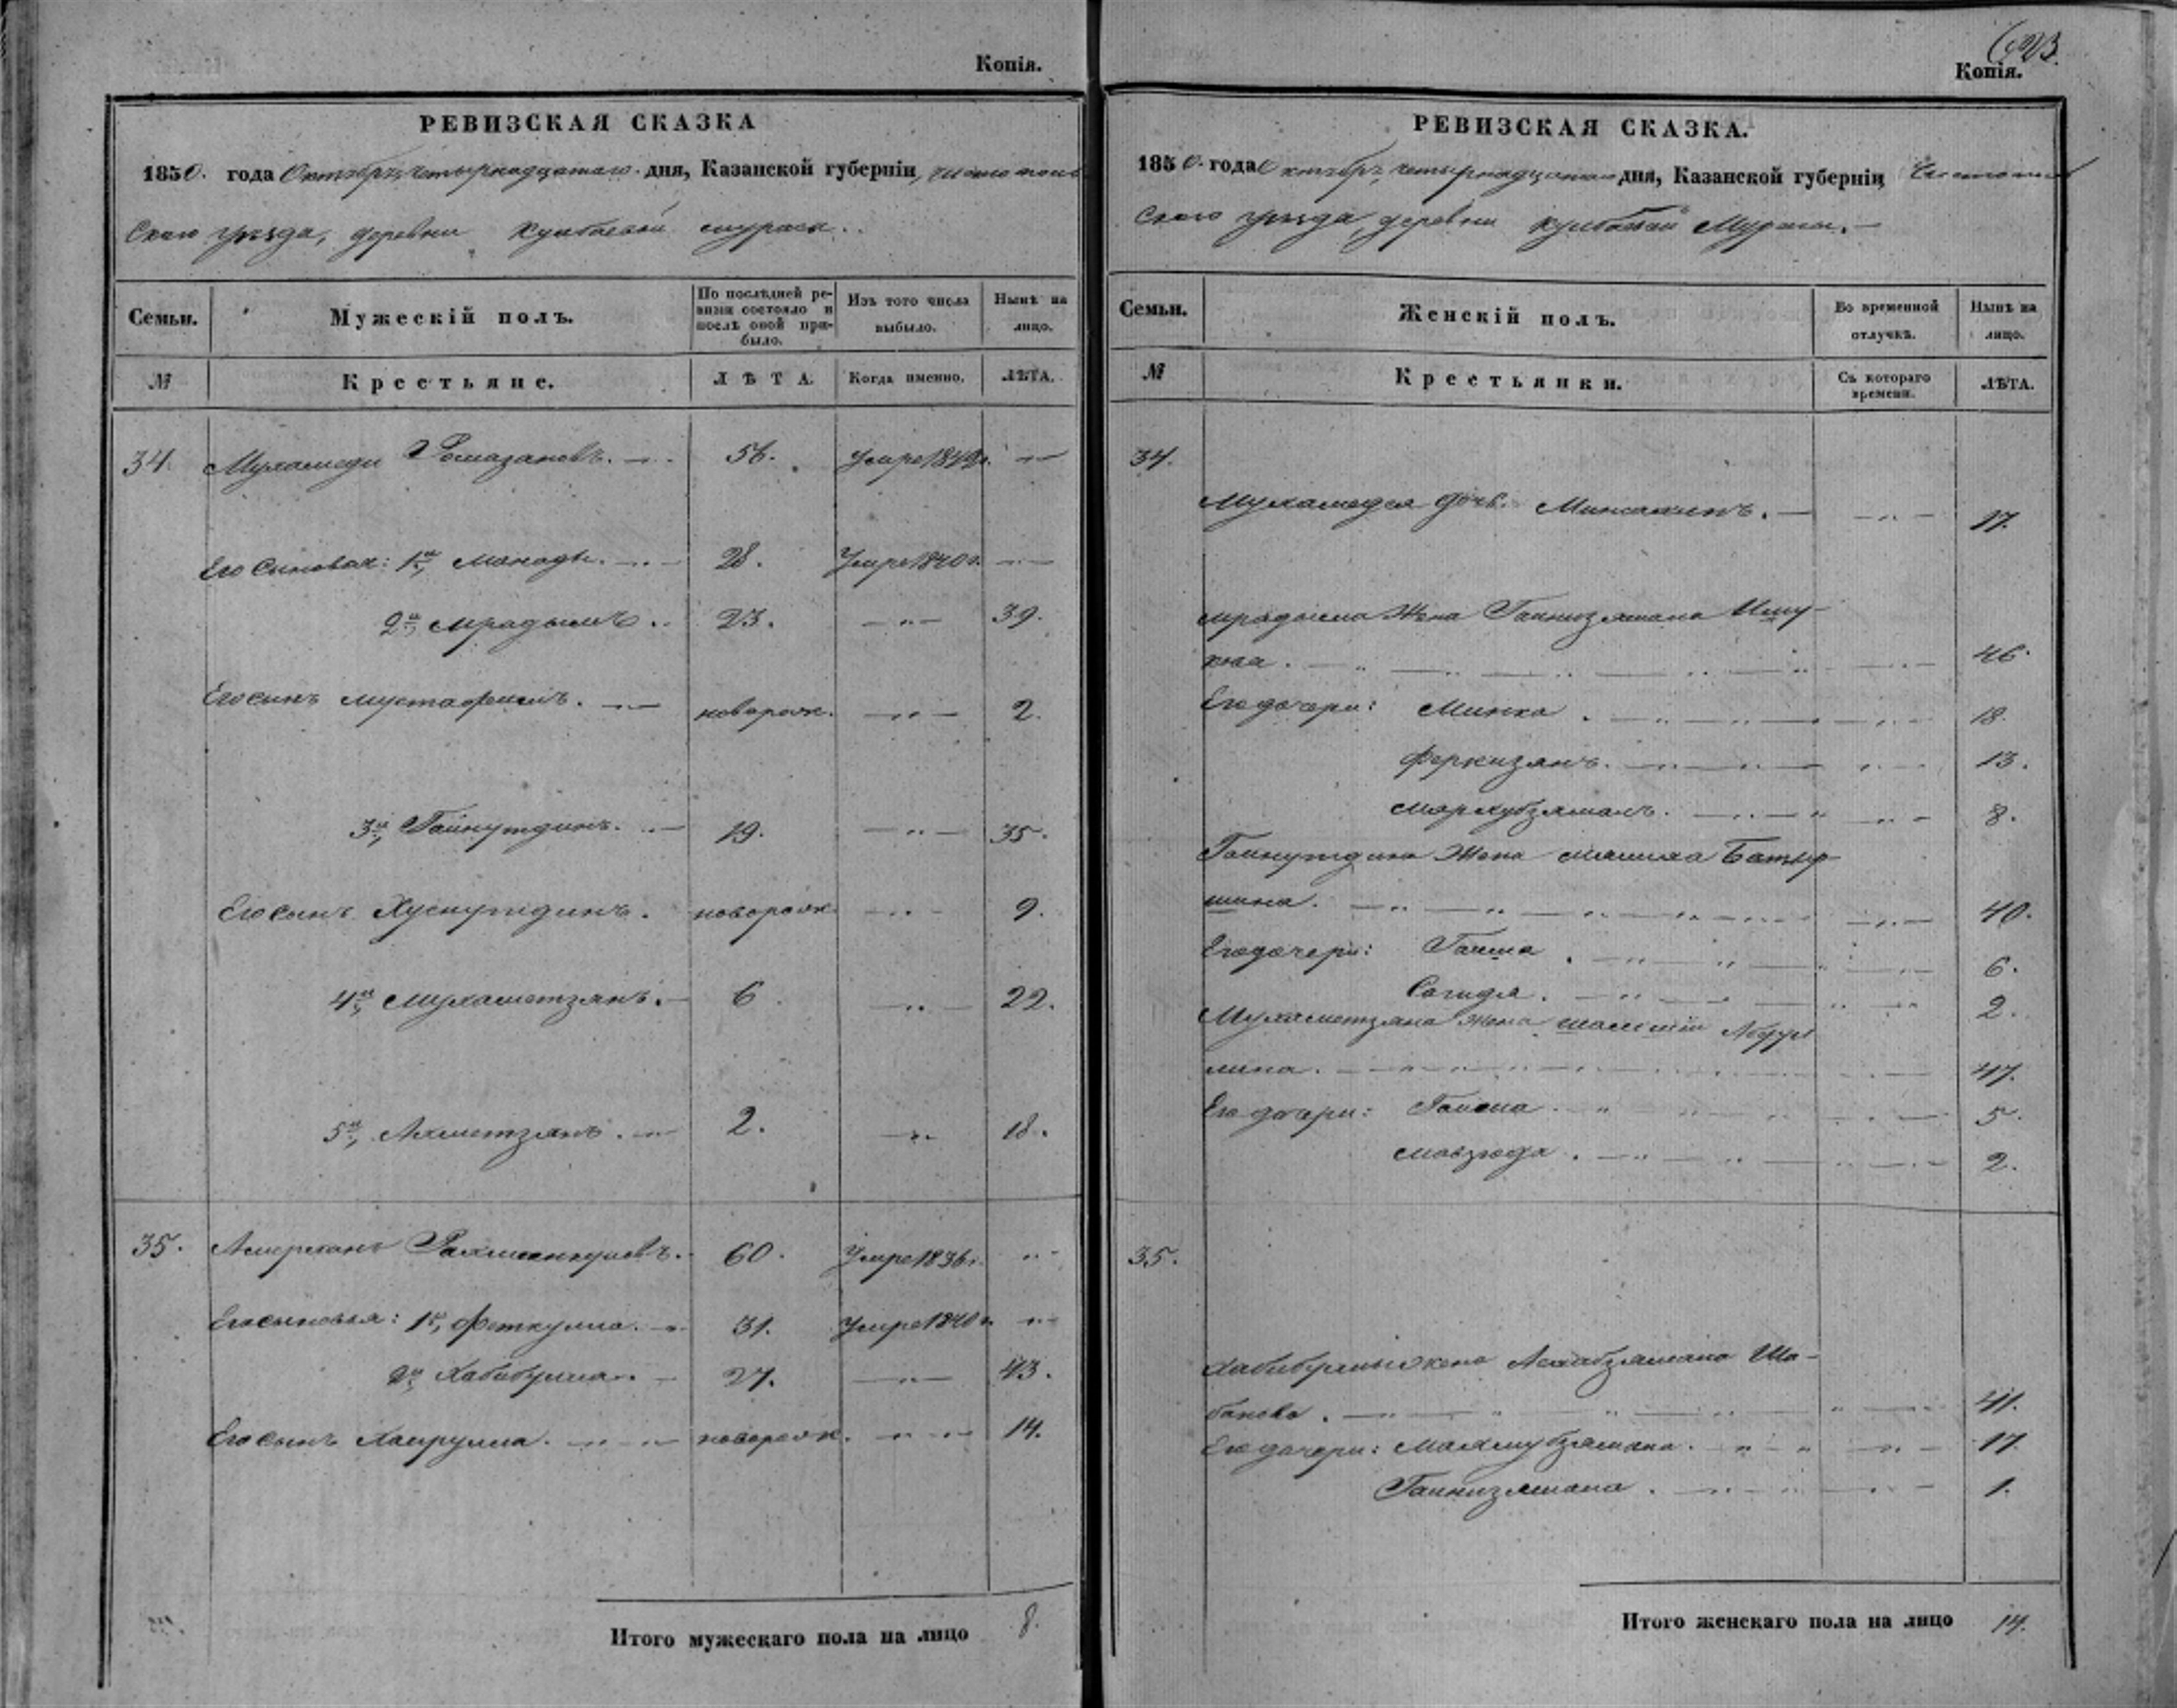 Копія.
РЕВИЗСКАЯ СКАЗКА
1850. года Октября четырнадцатаго дня, Казанской губерніи, Чистополь
скаго уѣзда, деревни Кулбаевой Мурасы.
Семьи.
Мужескій полъ.
По послѣдней ре-
визіи состояло и
послѣ оной при-
было.
Изъ того числа
выбыло.
Нынѣ на
лицо.
№
Крестьяне.
ЛѢТА.
Когда именно.
ЛѢТА.
34. Мухамеди Рамазановъ. 56. Умре 1849 г.
Его сыновья: 1й, Манады. 28. Умре 1840 г.
2й, Мрадымъ. 23. 39.
Его сынъ Мустафинъ. новорож. 2.
3й, Гайнутдинъ. 19. 35.
Его сынъ Хуснутдинъ. новорож. 9.
4й, Мухаметзянъ. 6 22.
5й, Ахметзянъ. 2. 18.
35. Амерханъ Рахманкуловъ. 60. Умре 1836 г.
Его сыновья: 1й, Феткулла. 31. Умре 1840 г.
2й Хабибулла. 27. 43.
Его сынъ Хайрулла. новорож. 14.
Итого мужескаго пола на лицо 8.
Копія.
РЕВИЗСКАЯ СКАЗКА.
1850. года Октября четырнадцатаго дня, Казанской губерніи, Чистополь
скаго уѣзда, деревни Кулбаевой Мурасы.
Семьи.
Женскій полъ.
Во временной
отлучкѣ.
Нынѣ на
лицо.
№
Крестьянки.
Съ котораго
времени.
ЛѢТА.
34.
Мухамедея дочь Минсакинъ. 17.
Мрадыма жена Гайнизямала Ишу-
кова. 46.
Его дочери: Минка. 18.
Феркизянъ. 13.
Мархубзямалъ. 8.
Гайнутдина жена Малиха Батыр-
шина. 40.
Его дочери: Гайша. 6.
Сагида. 2.
Мухаметзяна жена Абдул
лина. 47.
Его дочери: 5.
Мавзюда. 2.
35.
Хабибуллы жена Асхабзямала Ша-
банова. 41.
Его дочери: Махмубзямала. 17.
Гайнизямала. 1.
Итого женскаго пола на лицо 14.